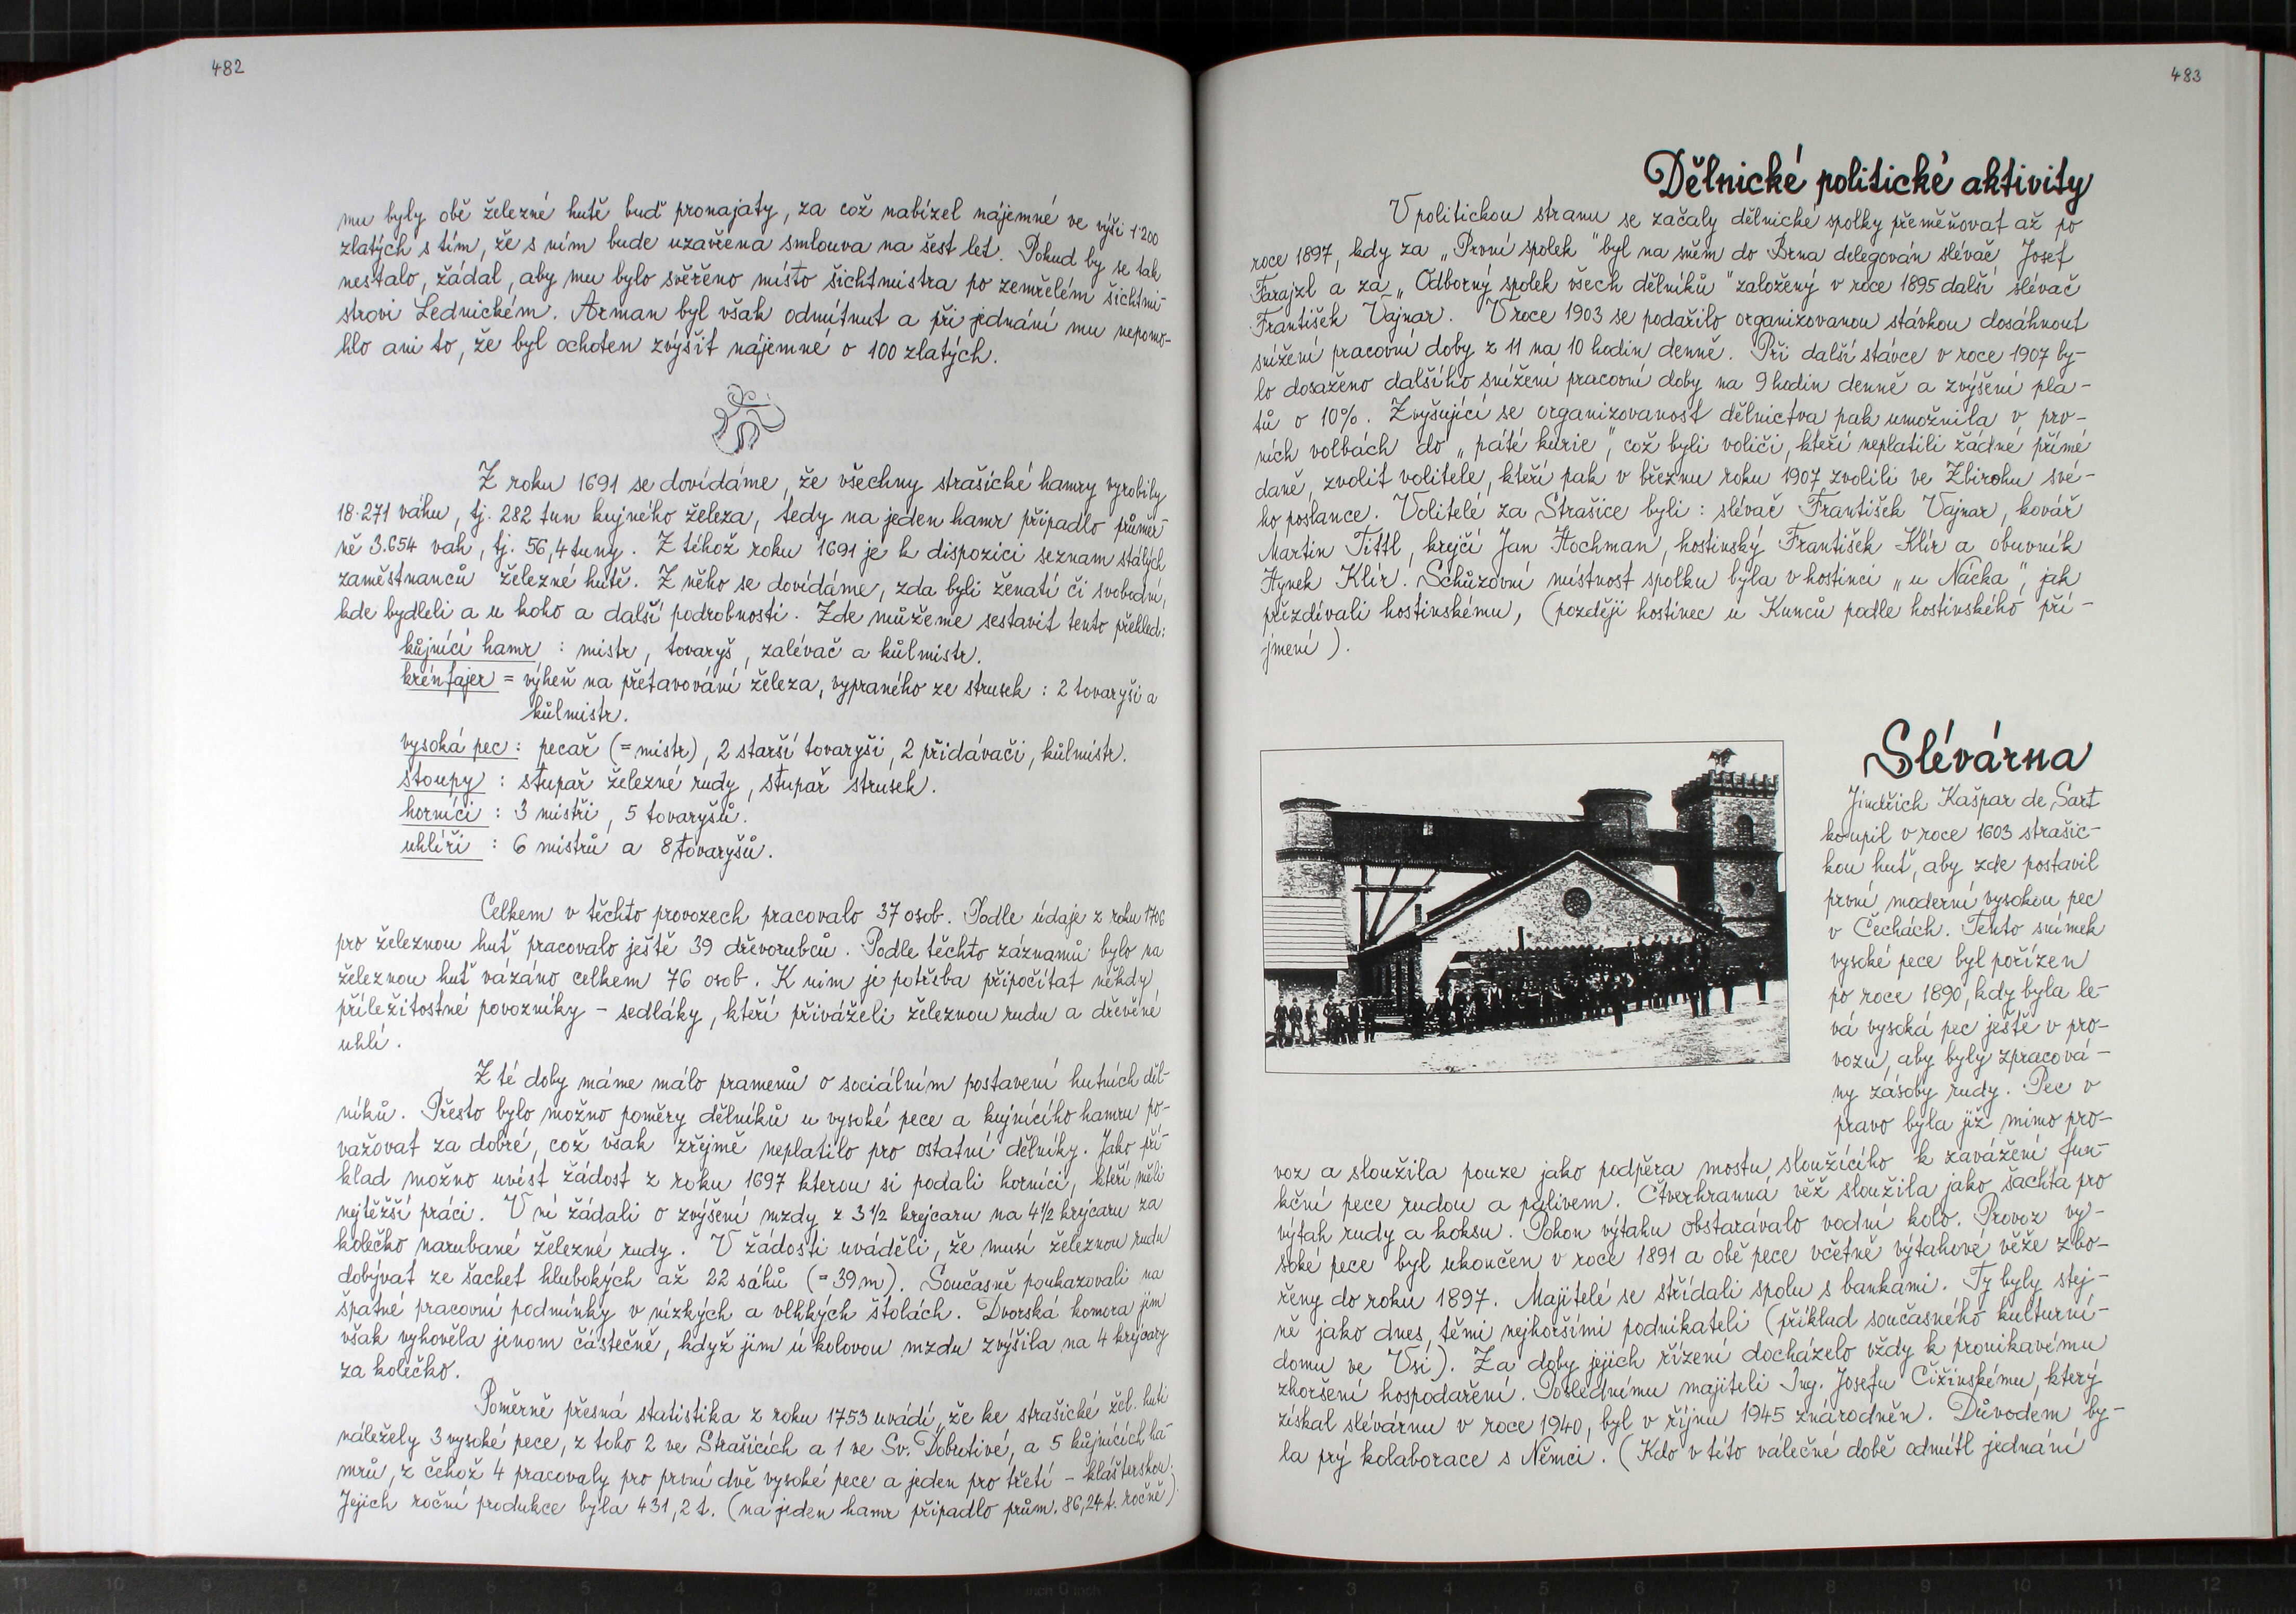 482
mu byly obě železné hutě buď pronajaty, za což nabízel nájemné ve výši 1·200
zlatých s tím, že s ním bude uzavřena smlouva na šest let. Pokud by se tak
nestalo, žádal, aby mu bylo svěřeno místo šichtmistra po zemřelém šichtmi-
strovi Lednickém. Arman byl však odmítnut a při jednání mu nepomo-
hlo ani to, že byl ochoten zvýšit nájemné o 100 zlatých.
Z roku 1691 se dovídáme, že všechny strašické hamry vyrobily
18·271 váhu, tj. 282 tun kujného železa, tedy na jeden hamr připadlo průměr-
ně 3.654 vah, tj. 56,4 tuny. Z téhož roku 1691 je k dispozici seznam stálých
zaměstnanců železné hutě. Z něho se dovídáme, zda byli ženatí či svobodní,
kde bydleli a u koho a další podrobnosti. Zde můžeme sestavit tento přehled:
kůjnící hamr : mistr, tovaryš, zalévač a kůlmistr.
krénfajer = výheň na přetavování železa, vypraného ze strusek : 2 tovaryši a
kůlmistr.
vysoká pec : pecař (= mistr), 2 starší tovaryši, 2 přidávači, kůlmistr.
stoupy : stupař železné rudy, stupař strusek.
horníci : 3 mistři, 5 tovaryšů.
uhlíři : 6 mistrů a 8 tovaryšů.
Celkem v těchto provozech pracovalo 37 osob. Podle údaje z roku 1706
pro železnou huť pracovalo ještě 39 dřevorubců. Podle těchto záznamů bylo na
železnou huť vázáno celkem 76 osob. K nim je potřeba připočítat někdy
příležitostné povozníky - sedláky, kteří přiváželi železnou rudu a dřevěné
uhlí.
Z té doby máme málo pramenů o sociálním postavení hutních děl-
níků. Přesto bylo možno poměry dělníků u vysoké pece a kujnícího hamru po-
važovat za dobré, což však zřejmě neplatilo pro ostatní dělníky. Jako pří-
klad možno uvést žádost z roku 1697 kterou si podali horníci, kteří měli
nejtěžší práci. V ní žádali o zvýšení mzdy z 3 1/2 krejcaru na 4 1/2 krejcaru za
kolečko narubané železné rudy. V žádosti uváděli, že musí železnou rudu
dobývat ze šachet hlubokých až 22 sáhů (= 39 m). Současně poukazovali na
špatné pracovní podmínky v nízkých a vlhkých štolách. Dvorská komora jim
však vyhověla jenom částečně, když jim úkolovou mzdu zvýšila na 4 krejcary
za kolečko.
Poměrně přesná statistika z roku 1753 uvádí, že ke strašické žel. huti
náležely 3 vysoké pece, z toho 2 ve Strašicích a 1 ve Sv. Dobrotivé, a 5 kůjnících ha-
mrů, z čehož 4 pracovaly pro první dvě vysoké pece a jeden pro třetí - klášterskou.
Jejich roční produkce byla 431,2 t. (na jeden hamr připadlo prům. 86,24 t. ročně)
483
Dělnické politické aktivity
V politickou stranu se začaly dělnické spolky přeměňovat až po
roce 1897, kdy za „První spolek" byl na sněm do Brna delegován slévač Josef
Farajzl a za „Odborný spolek všech dělníků" založený v roce 1895 další slévač
František Vajnar. V roce 1903 se podařilo organizovanou stávkou dosáhnout
snížení pracovní doby z 11 na 10 hodin denně. Při další stávce v roce 1907 by-
lo dosaženo dalšího snížení pracovní doby na 9 hodin denně a zvýšení pla-
tů o 10%. Zvyšující se organizovanost dělnictva pak umožnila v prv-
ních volbách do „páté kurie", což byli voliči, kteří neplatili žádné přímé
daně, zvolit volitele, kteří pak v březnu roku 1907 zvolili ve Zbirohu své-
ho poslance. Volitelé za Strašice byli : slévač František Vajnar, kovář
Martin Tittl, krejčí Jan Hochman, hostinský František Klír a obuvník
Hynek Klír. Schůzovní místnost spolku byla v hostinci „u Nácka", jak
přezdívali hostinskému, (později hostinec u Kunců podle hostinského pří-
jmení).
Slévárna
Jindřich Kašpar de Sart
koupil v roce 1603 strašic-
kou huť, aby zde postavil
první moderní vysokou pec
v Čechách. Tento snímek
vysoké pece byl pořízen
po roce 1890, kdy byla le-
vá vysoká pec ještě v pro-
vozu, aby byly zpracová-
ny zásoby rudy. Pec v
pravo byla již mimo pro-
voz a sloužila pouze jako podpěra mostu sloužícího k zavážení fun-
kční pece rudou a palivem. Čtverhranná věž sloužila jako šachta pro
výtah rudy a koksu. Pohon výtahu obstarávalo vodní kolo. Provoz vy-
soké pece byl ukončen v roce 1891 a obě pece včetně výtahové věže zbo-
řeny do roku 1897. Majitelé se střídali spolu s bankami. Ty byly stej-
ně jako dnes, těmi nejhoršími podnikateli (příklad současného kulturní-
domu ve Vsi). Za doby jejich řízení docházelo vždy k pronikavému
zhoršení hospodaření. Poslednímu majiteli Ing. Josefu Čižinskému, který
získal slévárnu v roce 1940, byl v říjnu 1945 znárodněn. Důvodem by-
la prý kolaborace s Němci. (Kdo v této válečné době odmítl jednání